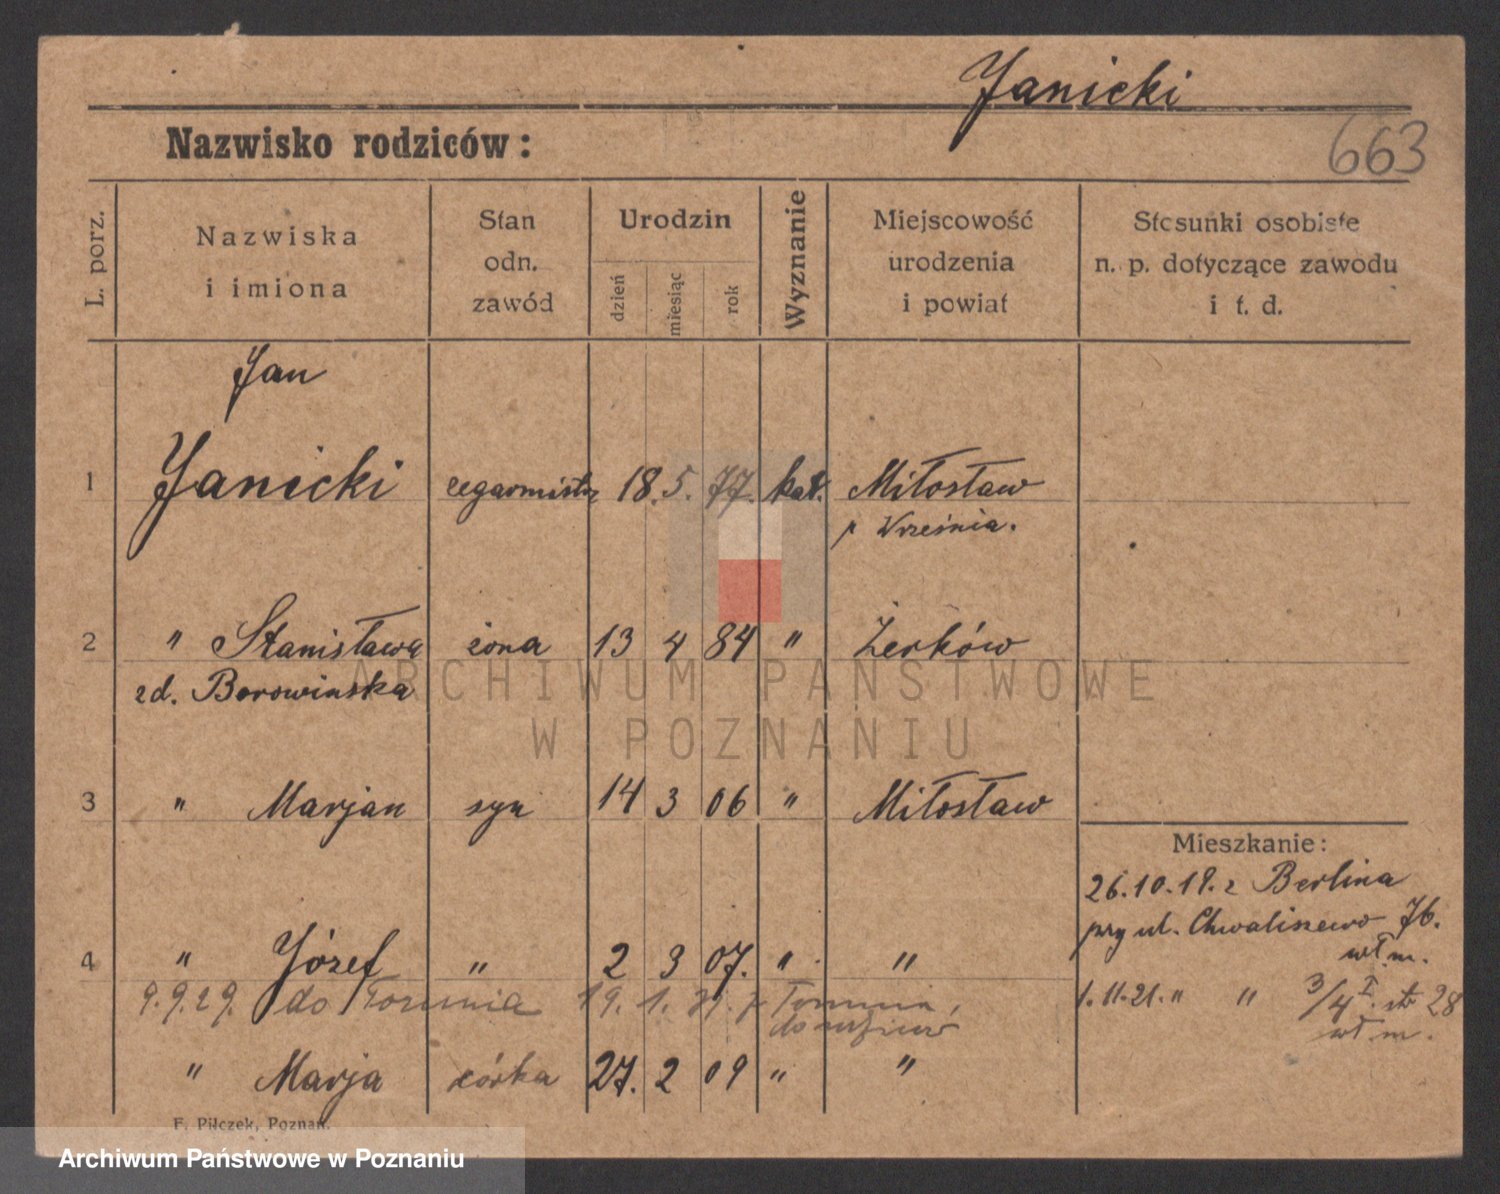 Janicki
663
Nazwisko rodziców:
L. porz.
Nazwiska
i imiona
Stan
odn.
zawód
Urodzin
dzień
miesiąc
rok
Wyznanie
Miejscowość
urodzenia
i powiat
Stosunki osobiste
n. p. dotyczące zawodu
i t. d.
Jan
1 Janicki zegarmistrz 18. 5. 77. kat. Miłosław
p Września.
2 " Stanisława żona 13 4 84 " Żerków
zd. Borowinska
ARCHIWUM PAŃSTWOWE
W POZNANIU
3 " Marjan syn 14 3 06 " Miłosław
Mieszkanie:
26.10.19. z Berlina
przy ul. Chwaliszewo 76.
wł m.
4 " Józef " 2 3 07. " "
9.9.29. do Torunia 19. 1. z Torunia,
1.11.21. " " 3/4 I. str 28
wł m.
" Marja córka 27. 2 09 " "
F. Pilczek, Poznań.
Archiwum Państwowe w Poznaniu